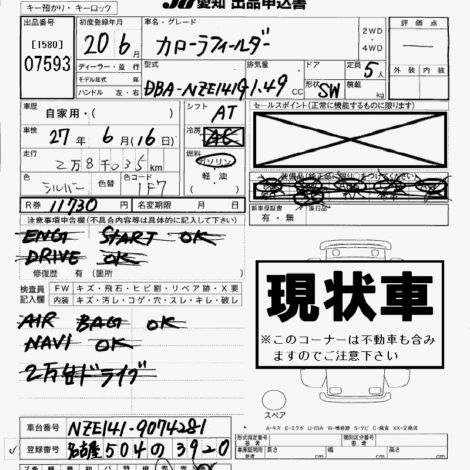 キー預かり・キーロック
愛知 出品申込書
出品番号
[1580]
07593
初度登録年月
20年6月
車名・グレード
カローラフィールダー
2WD・4WD
評価点
ディーラー・並行
モデル年式
ハンドル 左・右
型式
DBA-NZE141G
排気量
1.49 CC
ドア
形状
SW
定員
5人
積載
kg
外装
内装
車歴
自家用・
シフト
AT
セールスポイント(正常に機能するものに限ります)
車検
27年6月(16日)
冷房
AC
走行
2万8千035km
燃料
ガソリン
軽油
色
シルバー
色替
色コード
1F7
R券
11730円
名変期限
月 日
新車保証書
有・無
後日品
注意事項申告欄(不具合内容等は具体的に記入して下さい)
ENG START OK
DRIVE OK
修復歴 有(箇所 )
検査員記入欄
FW キズ・飛石・ヒビ割・リペア跡・X要
内装 キズ・汚し・コゲ・穴・スレ・キレ・破レ
AIR BAG OK
NAVI OK
2万台ドライブ
現状車
※このコーナーは不動車も含みますのでご注意下さい
スペア
A-キズ E-エクボ U-凹み W-補修跡 S-サビ C-腐食 XX-交換済
車台番号
NZE141-9074281
登録番号
名古屋504の3920
形式指定番号
類別区分番号
長さ cm
幅 cm
高さ cm